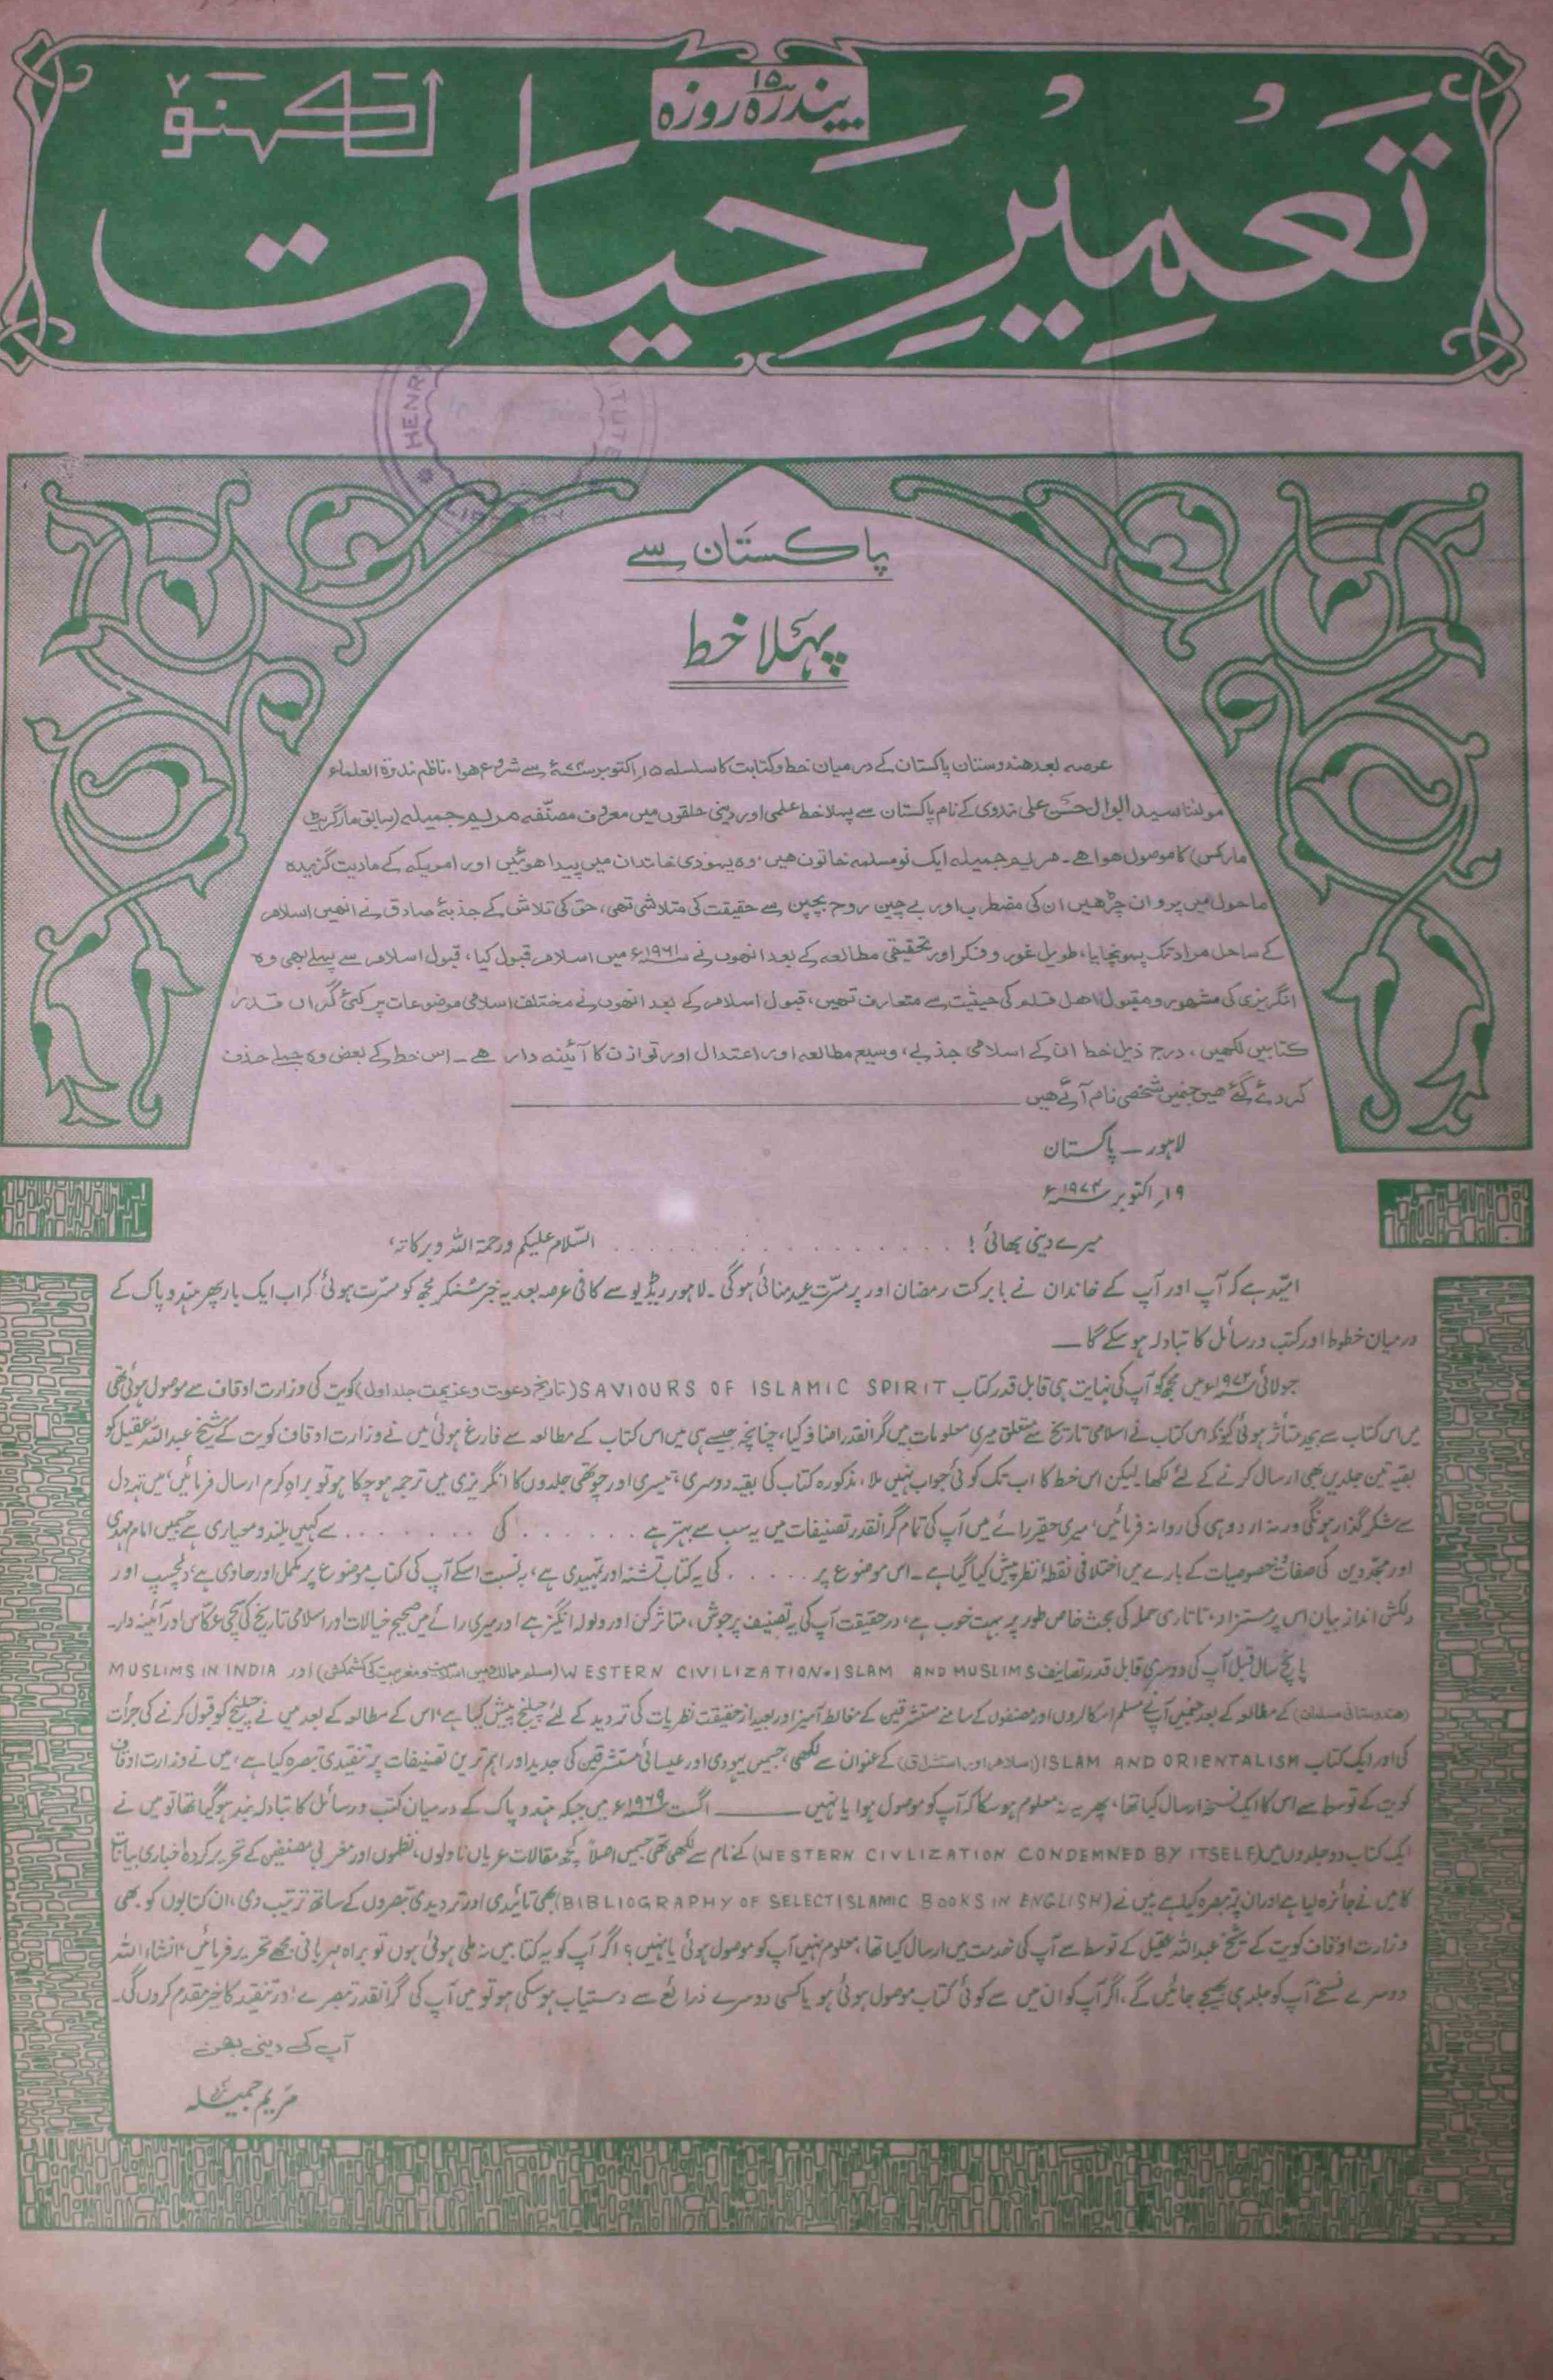 پندرہ ۱۵ روزہ
لکھنؤ
تعمیرِ حیات
HENRY
TUTE
پاکستان سے
پہلا خط
عرصہ بعد ھندوستان پاکستان کے درمیان خط و کتابت کا سلسلہ ۱۵ اکتوبر ۷۴ء سے شروع ھوا۔ ناظم ندوۃ العلماء
مولٰنا سید ابوالحسن علی ندوی کے نام پاکستان سے پہلا خط علمی اور دینی حلقوں میں معروف مصنّفہ مریم جمیلہ (سابق مارگریٹ
مارکس) کا موصول ھوا ھے۔ مریم جمیلہ ایک نومسلمہ خاتون ھیں۔ وہ یہودی خاندان میں پیدا ھوئیں اور امریکہ کے مادیت گزیدہ
ماحول میں پروان چڑھیں ان کی مضطرب اور بے چین روح بچپن سے حقیقت کی متلاشی تھی، حق کی تلاش کے جذبۂ صادق نے انھیں اسلام
کے ساحل مراد تک پہونچایا، طویل غور و فکر اور تحقیقی مطالعہ کے بعد انھوں نے ۱۹۶۱ء میں اسلام قبول کیا، قبول اسلام سے پہلے بھی وہ
انگریزی کی مشہور و مقبول اھل قلم کی حیثیت سے متعارف تھیں، قبول اسلام کے بعد انھوں نے مختلف اسلامی موضوعات پر کئی گراں قدر
کتابیں لکھیں، درج ذیل خط ان کے اسلامی جذبے، وسیع مطالعہ اور اعتدال اور توازن کا آئینہ دار ھے۔ اس خط کے بعض وہ جملے حذف
کردئے گئے ھیں جنمیں شخصی نام آئے ھیں
لاہور — پاکستان
۱۹ اکتوبر ۱۹۷۴ء
میرے دینی بھائی! . . . . . . . . . . . . . . . السّلام علیکم ورحمۃ اللہ وبرکاتہ،
امیّد ہے کہ آپ اور آپ کے خاندان نے بابرکت رمضان اور پرمسرّت عید منائی ہوگی۔ لاہور ریڈیو سے کافی عرصہ بعد یہ خبر سُنکر مجھ کو مسّرت ہوئی کہ اب ایک بار پھر ہند و پاک کے
درمیان خطوط اور کتب و رسائل کا تبادلہ ہوسکے گا —
جولائی ۱۹۷۳ء میں مجھ کو آپ کی نہایت ہی قابل قدر کتاب SAVIOURS OF ISLAMIC SPIRIT (تاریخ دعوت و عزیمت جلد اول) کویت کی وزارت اوقاف سے موصول ہوئی تھی
میں اس کتاب سے بیحد متأثر ہوئی کیونکہ اس کتاب نے اسلامی تاریخ سے متعلق میری معلومات میں گرانقدر اضافہ کیا، چنانچہ جیسے ہی میں اس کتاب کے مطالعہ سے فارغ ہوئی میں نے وزارت اوقاف کویت کے شیخ عبداللہ عقیل کو
بقیہ تین جلدیں بھی ارسال کرنے کے لئے لکھا۔ لیکن اس خط کا اب تک کوئی جواب نہیں ملا، مذکورہ کتاب کی بقیہ دوسری، تیسری اور چوتھی جلدوں کا انگریزی میں ترجمہ ہوچکا ہو تو براہِ کرم ارسال فرمائیں، میں تہہ دل
سے شکر گذار ہونگی ورنہ اردو ہی کی روانہ فرمائیں، میری حقیر رائے میں آپ کی تمام گرانقدر تصنیفات میں یہ سب سے بہتر ہے . . . . . . کی . . . . . . . سے کہیں بلند و معیاری ہے جسمیں امام مہدی
اور مجدّدین کی صفات خصوصیات کے بارے میں اختلافی نقطۂ نظر پیش کیا گیا ہے۔ اس موضوع پر . . . . . کی یہ کتاب تشنہ اور تمہیدی ہے، بہ نسبت اسکے آپ کی کتاب موضوع پر مکمل اور حاوی ہے، دلچسپ اور
دلکش انداز بیان اس پر مستزاد، تاتاری حملہ کی بحث خاص طور پر بہت خوب ہے، درحقیقت آپ کی یہ تصنیف پرجوش، متاثر کن اور ولولہ انگیز ہے اور میری رائے میں صحیح خیالات اور اسلامی تاریخ کی سچی عکّاس اور آئینہ دار۔
پانچ سال قبل آپ کی دوسری قابل قدر تصانیف WESTERN CIVILIZATION ISLAM AND MUSLIMS (مسلم ممالک میں اسلامیت و مغربیت کی کشمکش) اور MUSLIMS IN INDIA
(ھندوستانی مسلمان) کے مطالعہ کے بعد جنمیں آپ نے مسلم اسکالروں اور مصنفوں کے سامنے مستشرقین کے مغالطہ آمیز اور بعید از حقیقت نظریات کی تردید کے لئے چیلنج پیش کیا ہے، اس کے مطالعہ کے بعد میں نے چیلنج کو قبول کرنے کی جرأت
کی اور ایک کتاب ISLAM AND ORIENTALISM (اسلام اور استشراق) کے عنوان سے لکھی، جسمیں یہودی اور عیسائی مستشرقین کی جدید اور اہم ترین تصنیفات پر تنقیدی تبصرہ کیا ہے، میں نے وزارت اوقاف
کویت کے توسط سے اس کا ایک نسخہ ارسال کیا تھا، پھر یہ نہ معلوم ہوسکا کہ آپ کو موصول ہوا یا نہیں — اگست ۱۹۶۹ء میں جبکہ ہند و پاک کے درمیان کتب و رسائل کا تبادلہ بند ہوگیا تھا تو میں نے
ایک کتاب دو جلدوں میں (WESTERN CIVLIZATION CONDEMNED BY ITSELF) کے نام سے لکھی تھی جسمیں اصلاً کچھ مقالات عریاں ناولوں، نظموں اور مغربی مصنفین کے تحریر کردہ اخباری بیانات
کا میں نے جائزہ لیا ہے اور ان پر تبصرہ کیا ہے میں نے (BIBLIOGRAPHY OF SELECT ISLAMIC BOOKS IN ENGLISH) بھی تائیدی اور تردیدی تبصروں کے ساتھ ترتیب دی، ان کتابوں کو بھی
وزارت اوقاف کویت کے شیخ عبداللہ عقیل کے توسط سے آپ کی خدمت میں ارسال کیا تھا، معلوم نہیں آپ کو موصول ہوئی یا نہیں؟ اگر آپ کو یہ کتابیں نہ ملی ہوئی ہوں تو براہ مہربانی مجھے تحریر فرمائیں، انشاء اللہ
دوسرے نسخے آپ کو جلد ہی بھیجے جائیں گے، اگر آپ کو ان میں سے کوئی کتاب موصول ہوئی ہو یا کسی دوسرے ذرائع سے دستیاب ہوسکی ہو تو میں آپ کی گرانقدر تبصرے اور تنقید کا خیر مقدم کروں گی۔
آپ کی دینی بھن
مریم جمیلہ